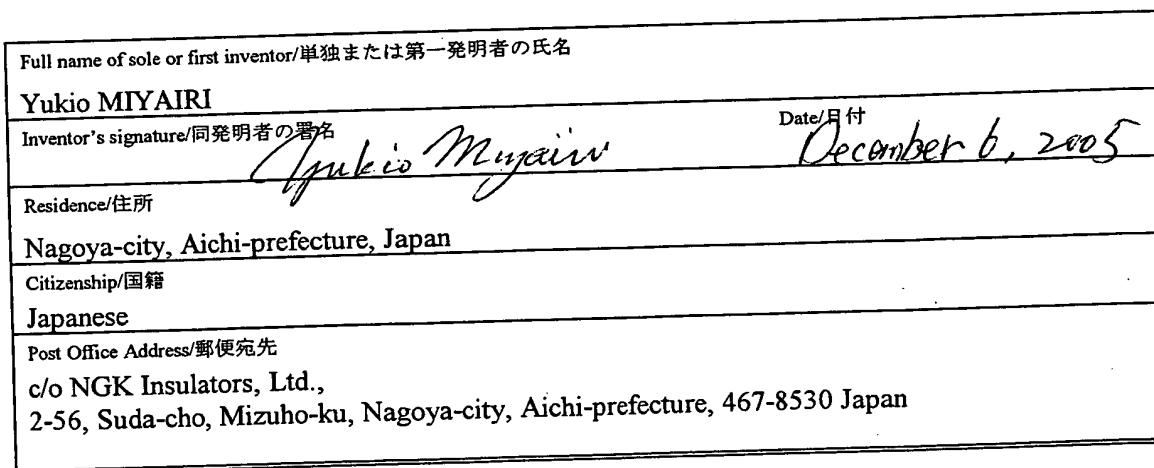 Full name of sole or first inventor/単独または第一発明者の氏名
Yukio MIYAIRI
Inventor's signature/同発明者の署名 Yukio Miyairi Date/日付 December 6, 2005
Residence/住所
Nagoya-city, Aichi-prefecture, Japan
Citizenship/国籍
Japanese
Post Office Address/郵便宛先
c/o NGK Insulators, Ltd.,
2-56, Suda-cho, Mizuho-ku, Nagoya-city, Aichi-prefecture, 467-8530 Japan